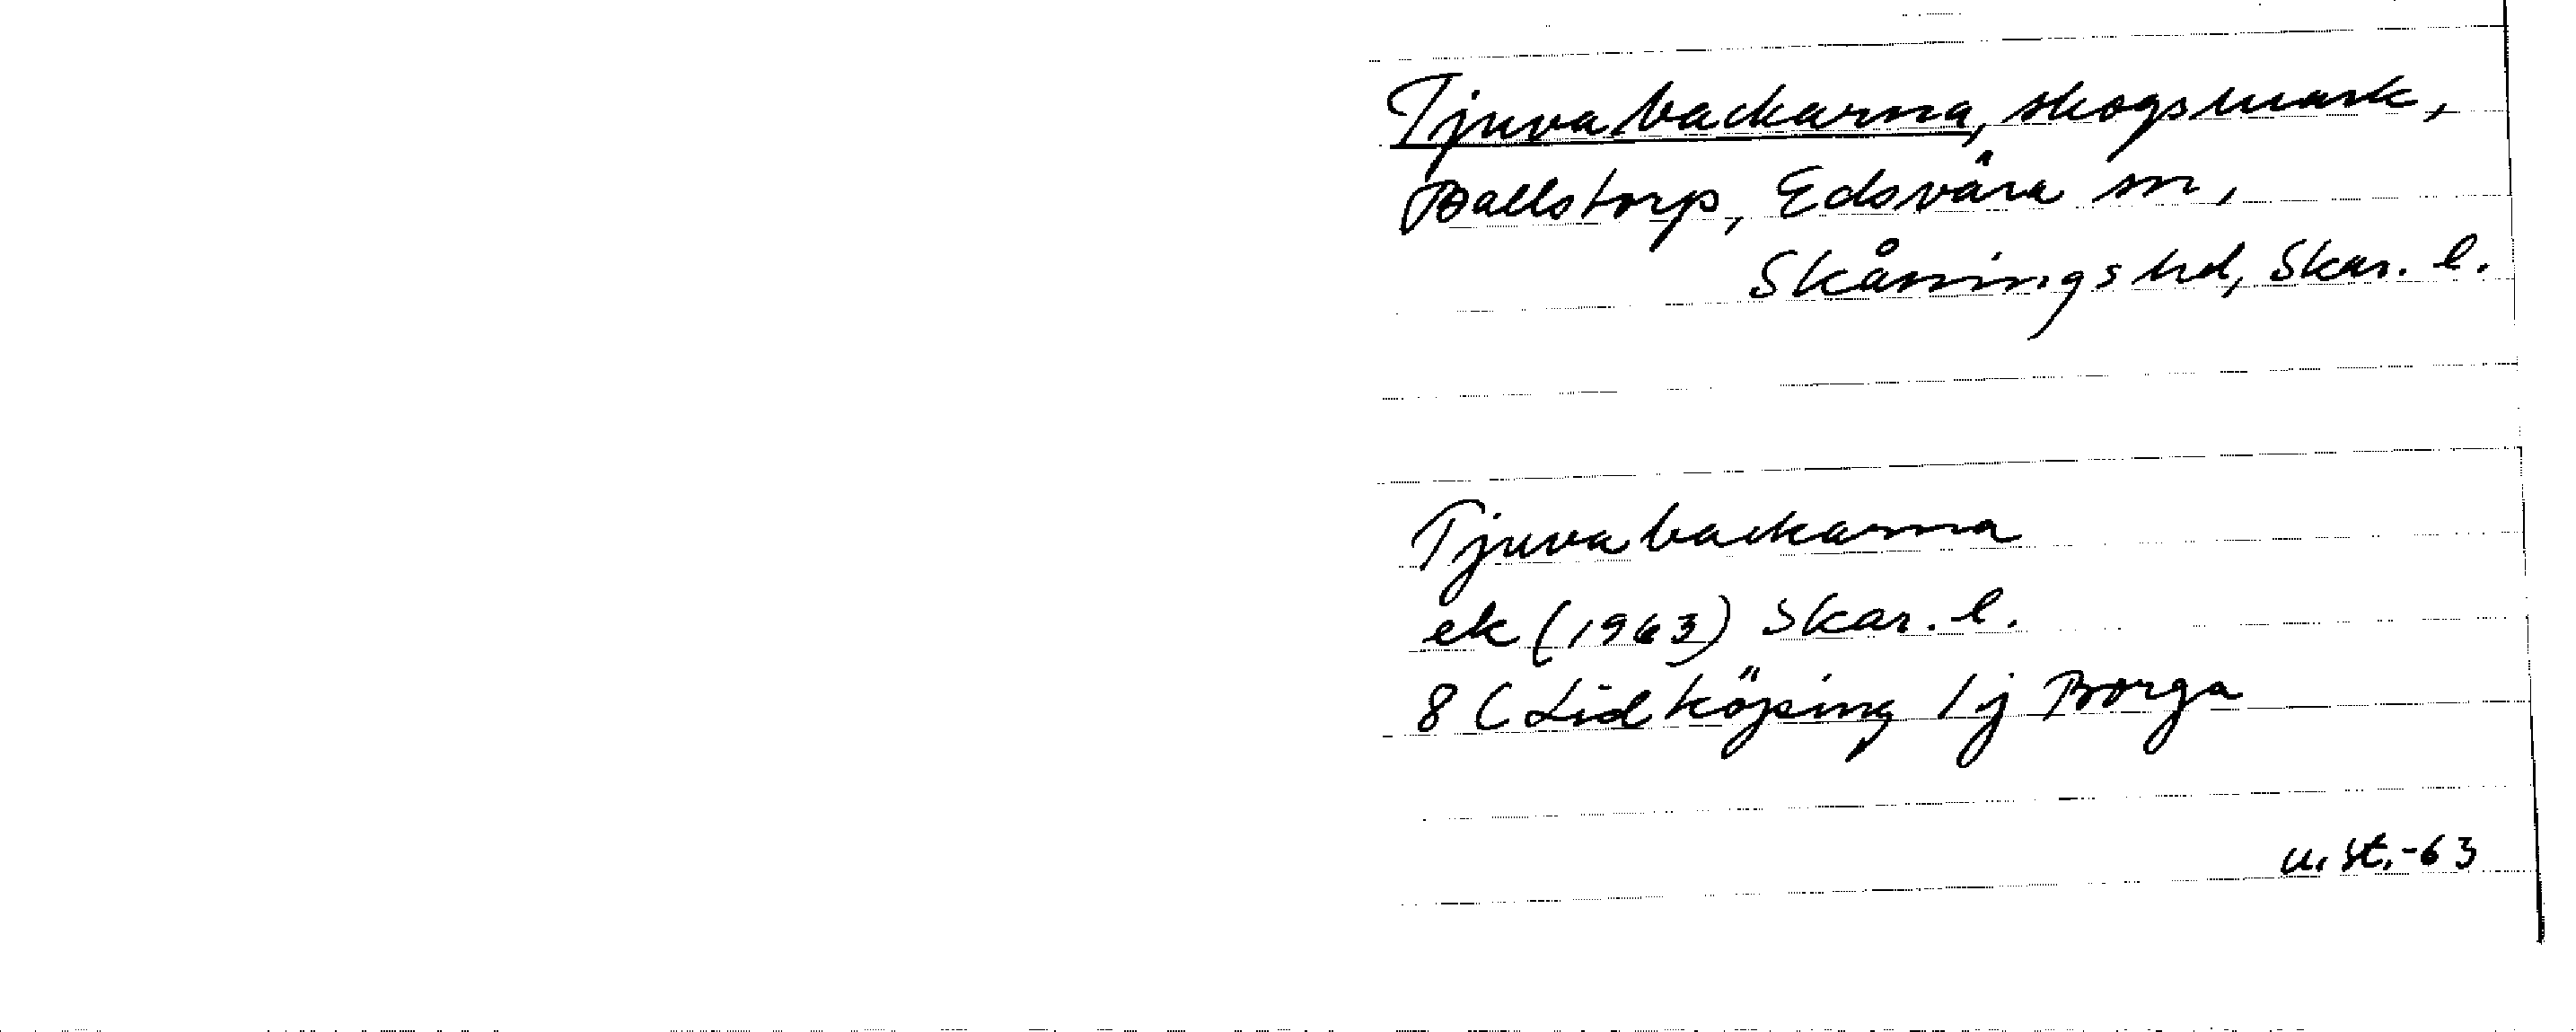 Tjuvabackarna, skogsmark,
Ballstorp, Edsvära sn,
Skånings hd, Skar. l.
Tjuvabackarna
ek (1963) Skar. l.
8 C Lidköping 1j Borga
u. st. -63